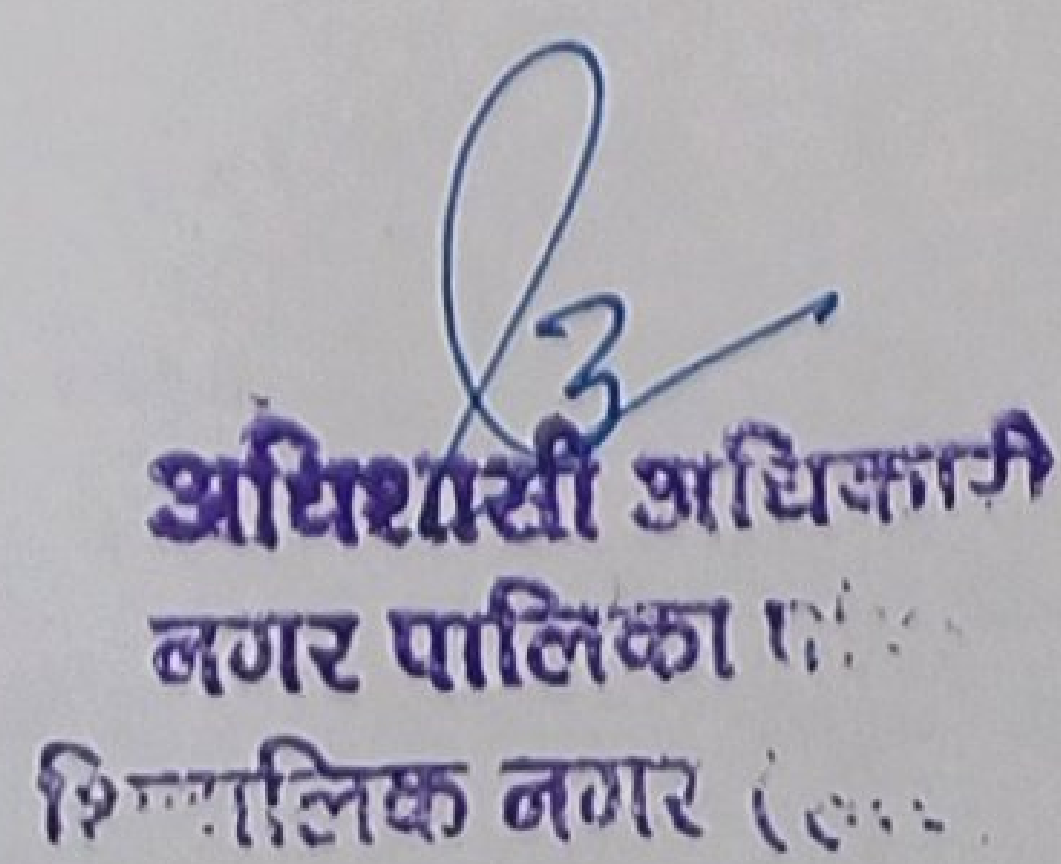 अधिशासी अधिकारी
नगर पालिका
शिवालिक नगर